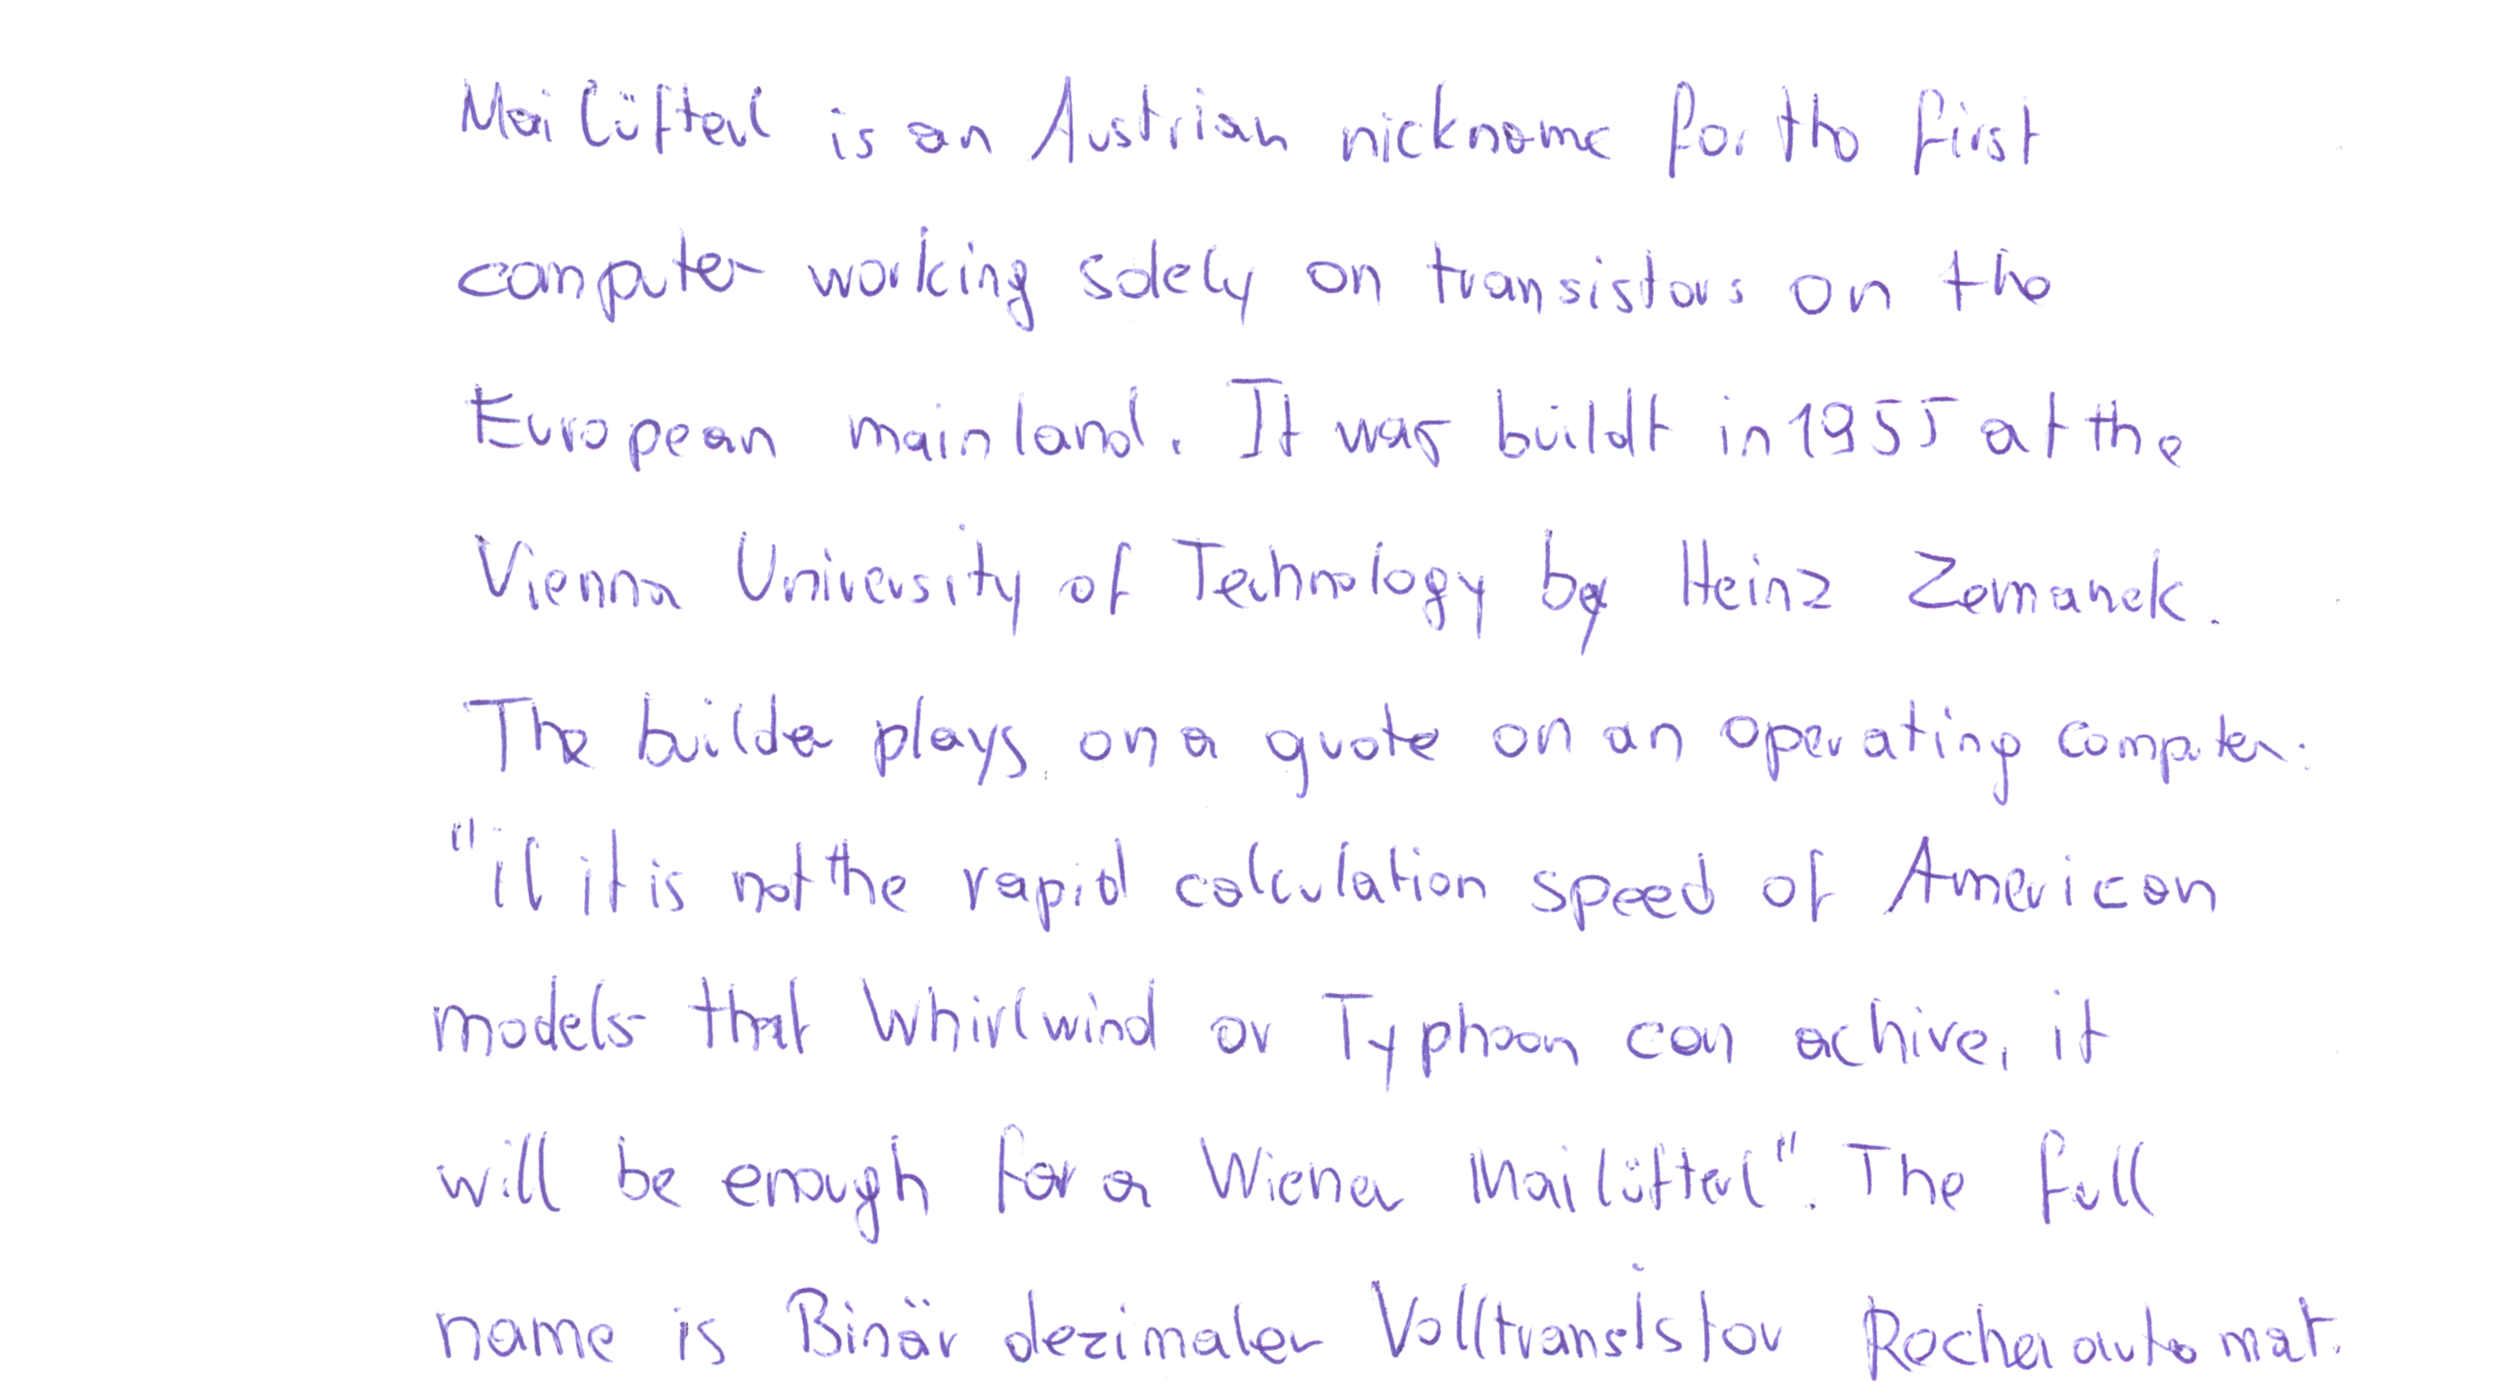 Mailüfterl is an Austrian nickname for the first
computer working solely on transistors on the
European mainland. It was buildt in 1955 at the
Vienna University of Technology by Heinz Zemanek.
The builder plays on a quote on an operating computer:
"If it is not the rapid calculation speed of American
models that Whirlwind or Typhoon can achive, it
will be enough for a Wiener Mailüfterl". The full
name is Binär dezimaler Volltransistor Rechenautomat.